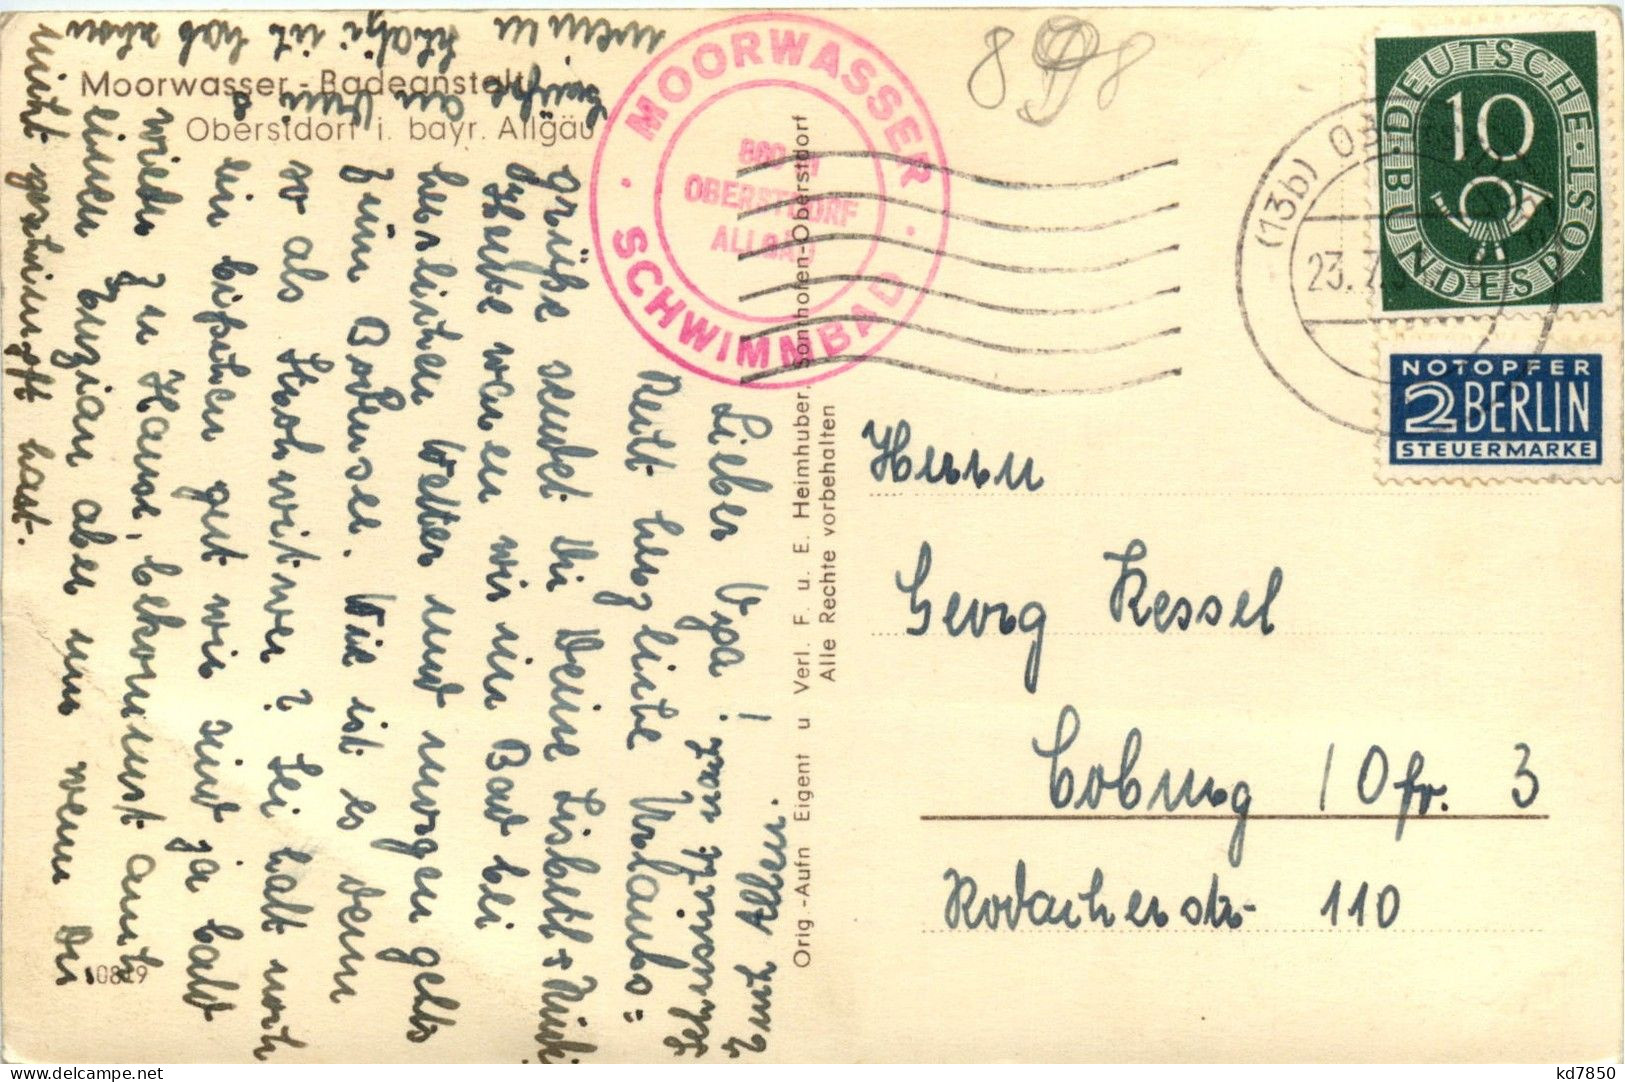 Moorwasser-Badeanstalt
Oberstdorf i. bayr. Allgäu
10849
MOORWASSER
SCHWIMMBAD
OBERSTDORF
ALLGÄU
898
(13b)
23.7.
DEUTSCHE BUNDESPOST
10
NOTOPFER
2 BERLIN
STEUERMARKE
Orig.-Aufn Eigent u Verl. F. u. E. Heimhuber, Sonthofen-Oberstdorf
Alle Rechte vorbehalten
Lieber Opa!
Recht herzliche Urlaubs=
grüße sendet Dir Deine Lisbeth +
Heute waren wir im Bad bei
herrlichen Wetter und morgen gehts
zum Bodensee. Wie ist es denn
so als Strohwitwer? Sei halt noch
ein bißchen gut wir sind ja bald
wieder zu Hause, bekommst auch
einen Enzian aber nur wenn Du
nicht geschimpft hast.
Euch allen.
Herrn
Georg Kessel
Coburg / Ofr. 3
Rodacherstr. 110
kd7850